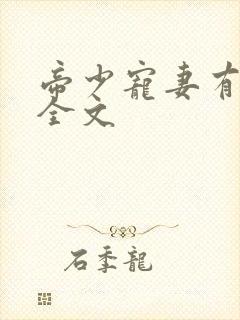 帝少寵妻有
全文
石季龍